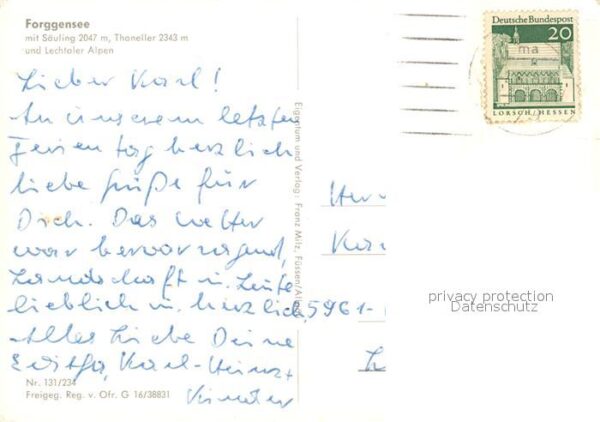 Forggensee
mit Säuling 2047 m, Thaneller 2343 m
und Lechtaler Alpen
Lieber Karl!
An unserem letzten
Ferientag herzlich
liebe Grüße für
Dich. Das Wetter
war hervorragend,
Landschaft u. Leute
lieblich u. herzlich.
Alles Liebe Deine
Karl-Heinz +
Kinder
Nr. 131/234
Freigeg. Reg. v. Ofr. G 16/38831
Eigentum und Verlag: Franz Milz, Füssen/Allgäu
Deutsche Bundespost
20
LORSCH/HESSEN
Herrn
5961
privacy protection
Datenschutz